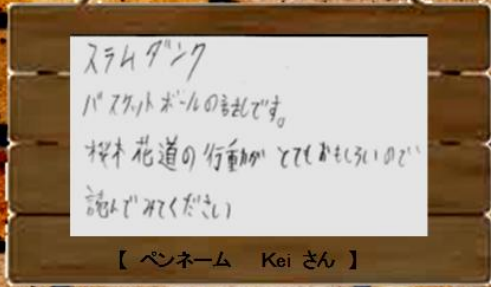 スラムダンク
バスケットボールの話しです。
桜木花道の行動が とてもおもしろいので
読んでみてください
【 ペンネーム Kei さん 】